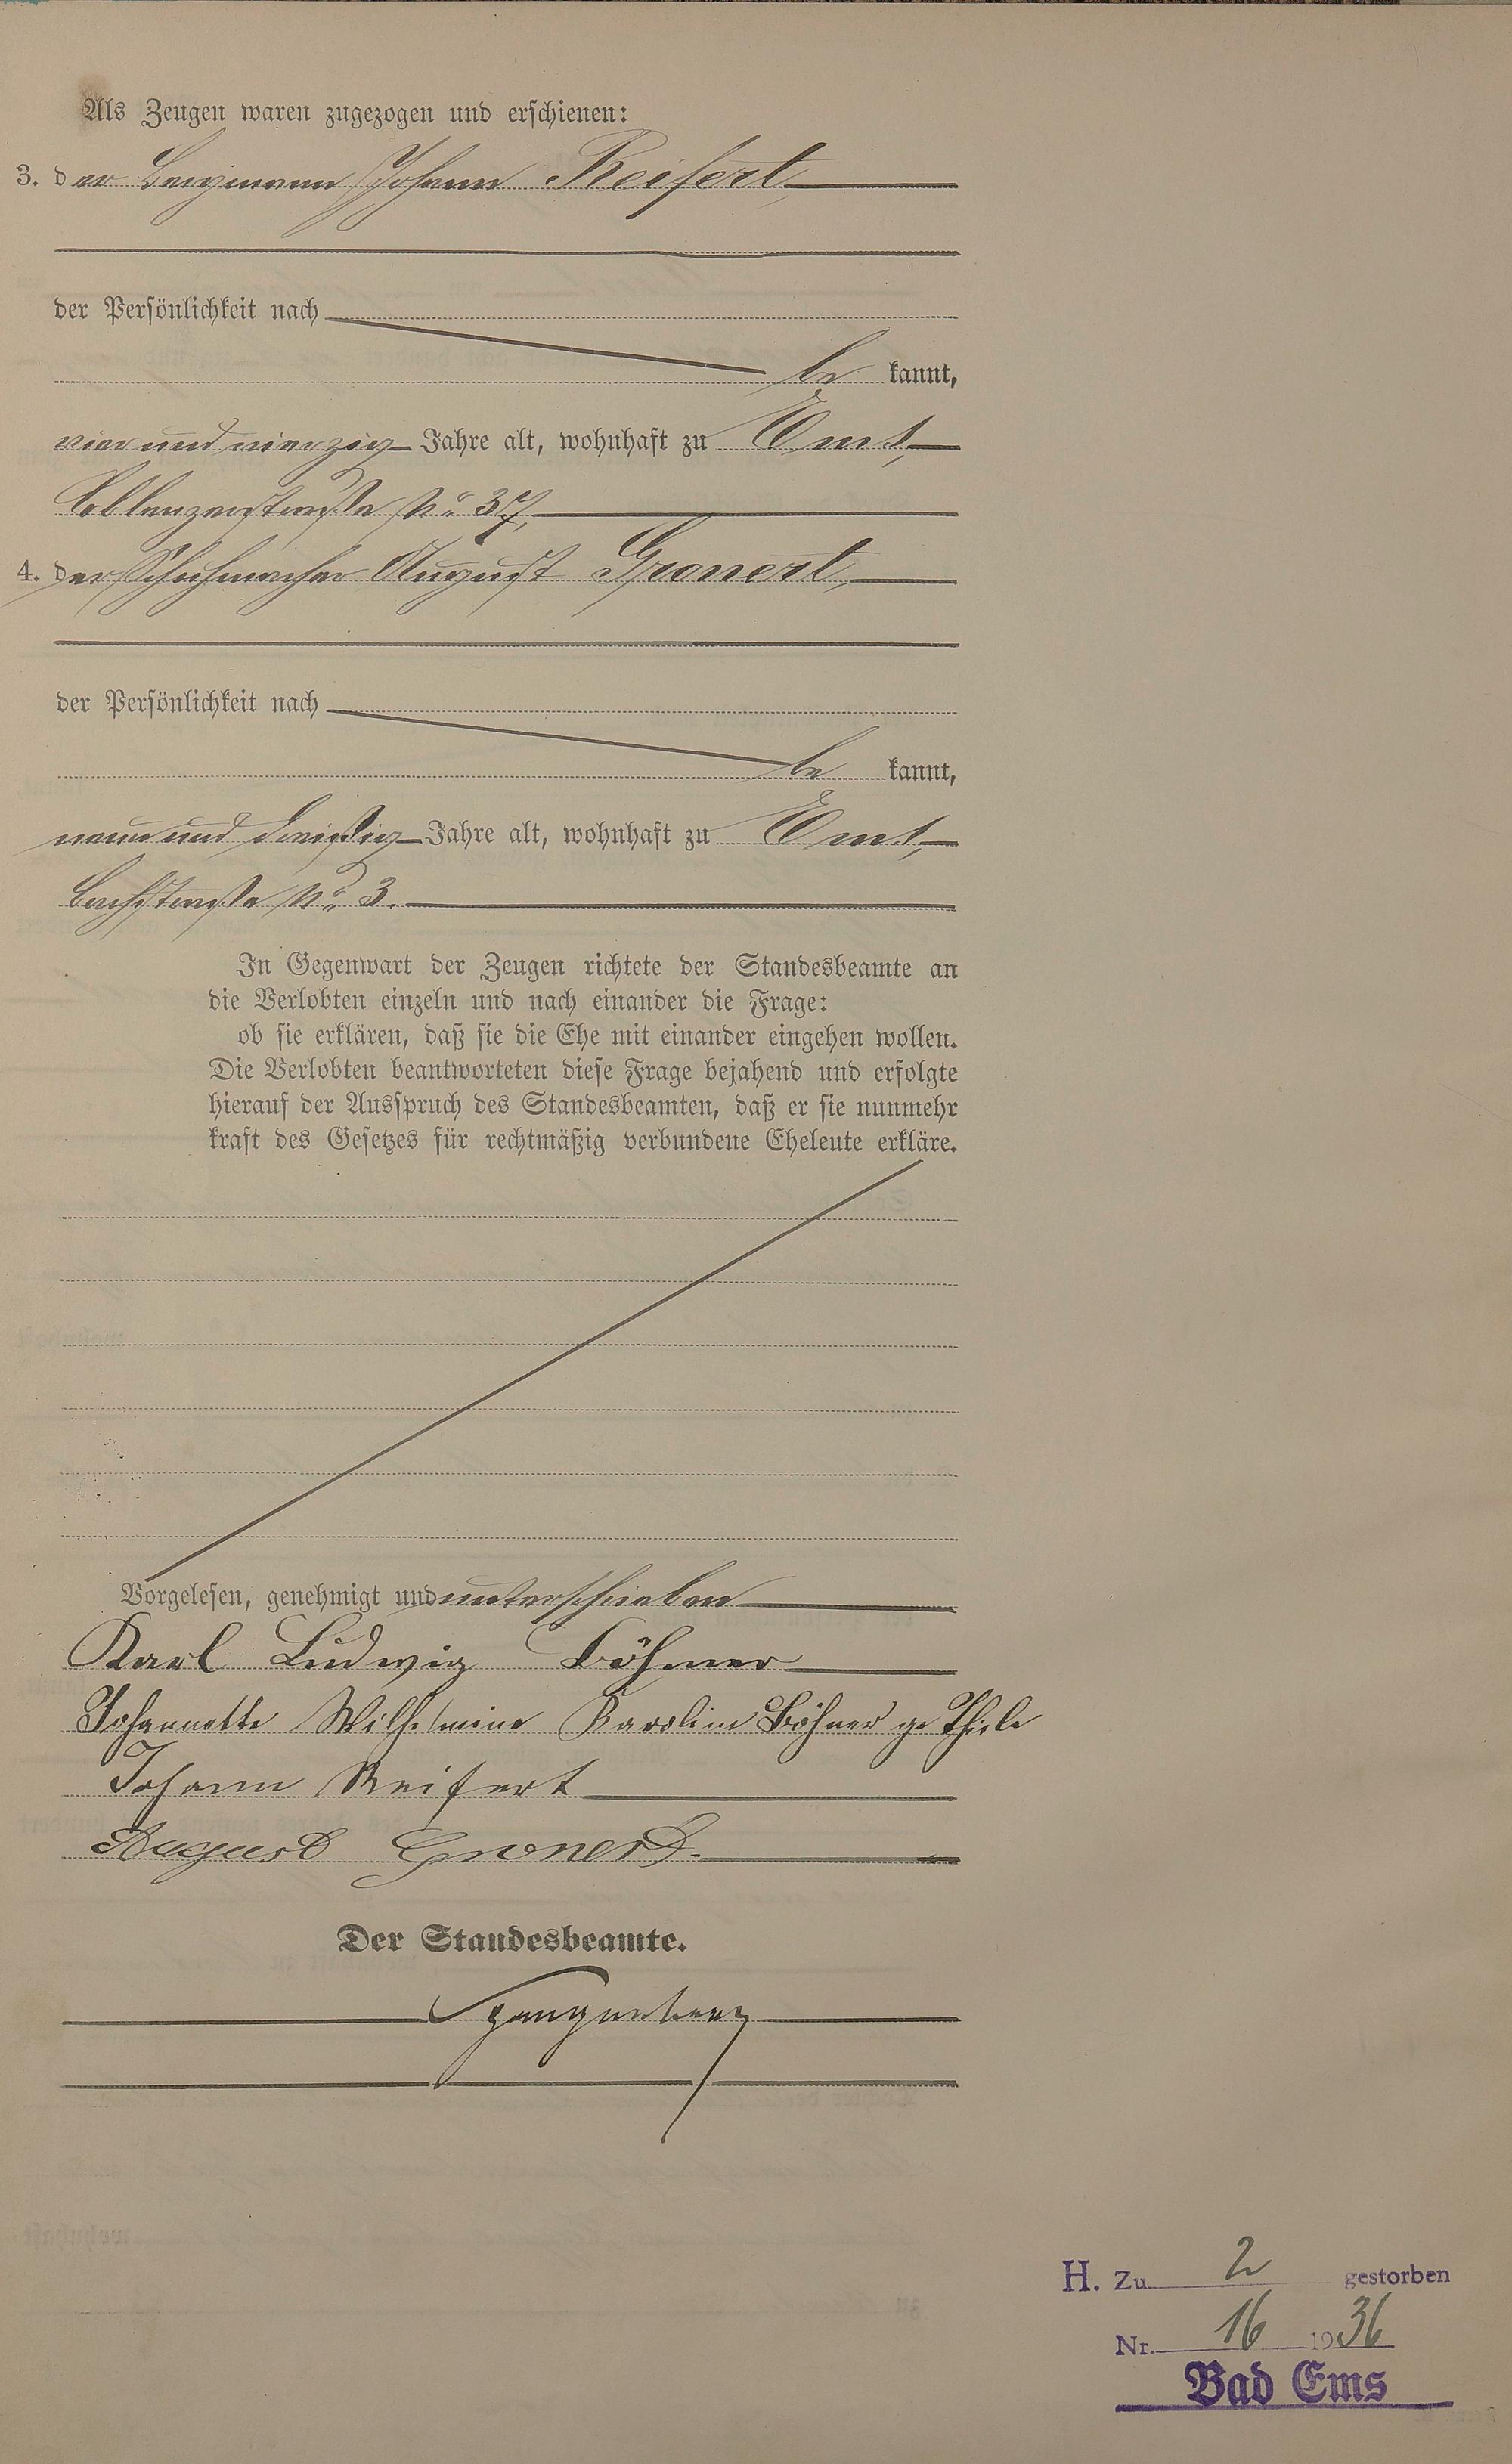 Als Zeugen waren zugezogen und erschienen:
3. der Bergmann Johann Reifert,
der Persönlichkeit nach
be kannt,
vier und vierzig Jahre alt, wohnhaft zu Ems,
Coblenzerstraße No 37,
4. der Schuhmacher August Gronert,
der Persönlichkeit nach
be kannt,
neun und dreißig Jahre alt, wohnhaft zu Ems,
Bachstraße No 3.
In Gegenwart der Zeugen richtete der Standesbeamte an
die Verlobten einzeln und nach einander die Frage:
ob sie erklären, daß sie die Ehe mit einander eingehen wollen.
Die Verlobten beantworteten diese Frage bejahend und erfolgte
hierauf der Ausspruch des Standesbeamten, daß er sie nunmehr
kraft des Gesetzes für rechtmäßig verbundene Eheleute erkläre.
Vorgelesen, genehmigt und unterschrieben
Karl Ludwig Böhmer
Johannette Wilhelmine Karolin Böhner ge Thiele
Johann Reifert
August Gronert.
Der Standesbeamte.
Spangenberg
H. Zu 2 gestorben
Nr. 16 1936
Bad Ems